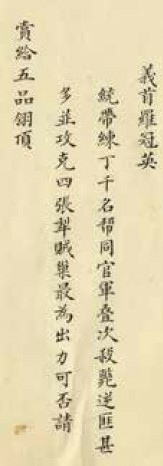 義首羅冠英
統帶練丁千名帮同官軍叠次殺斃逆匪甚
多並攻克四張犁賊巢最為出力可否請
賞給五品翎頂